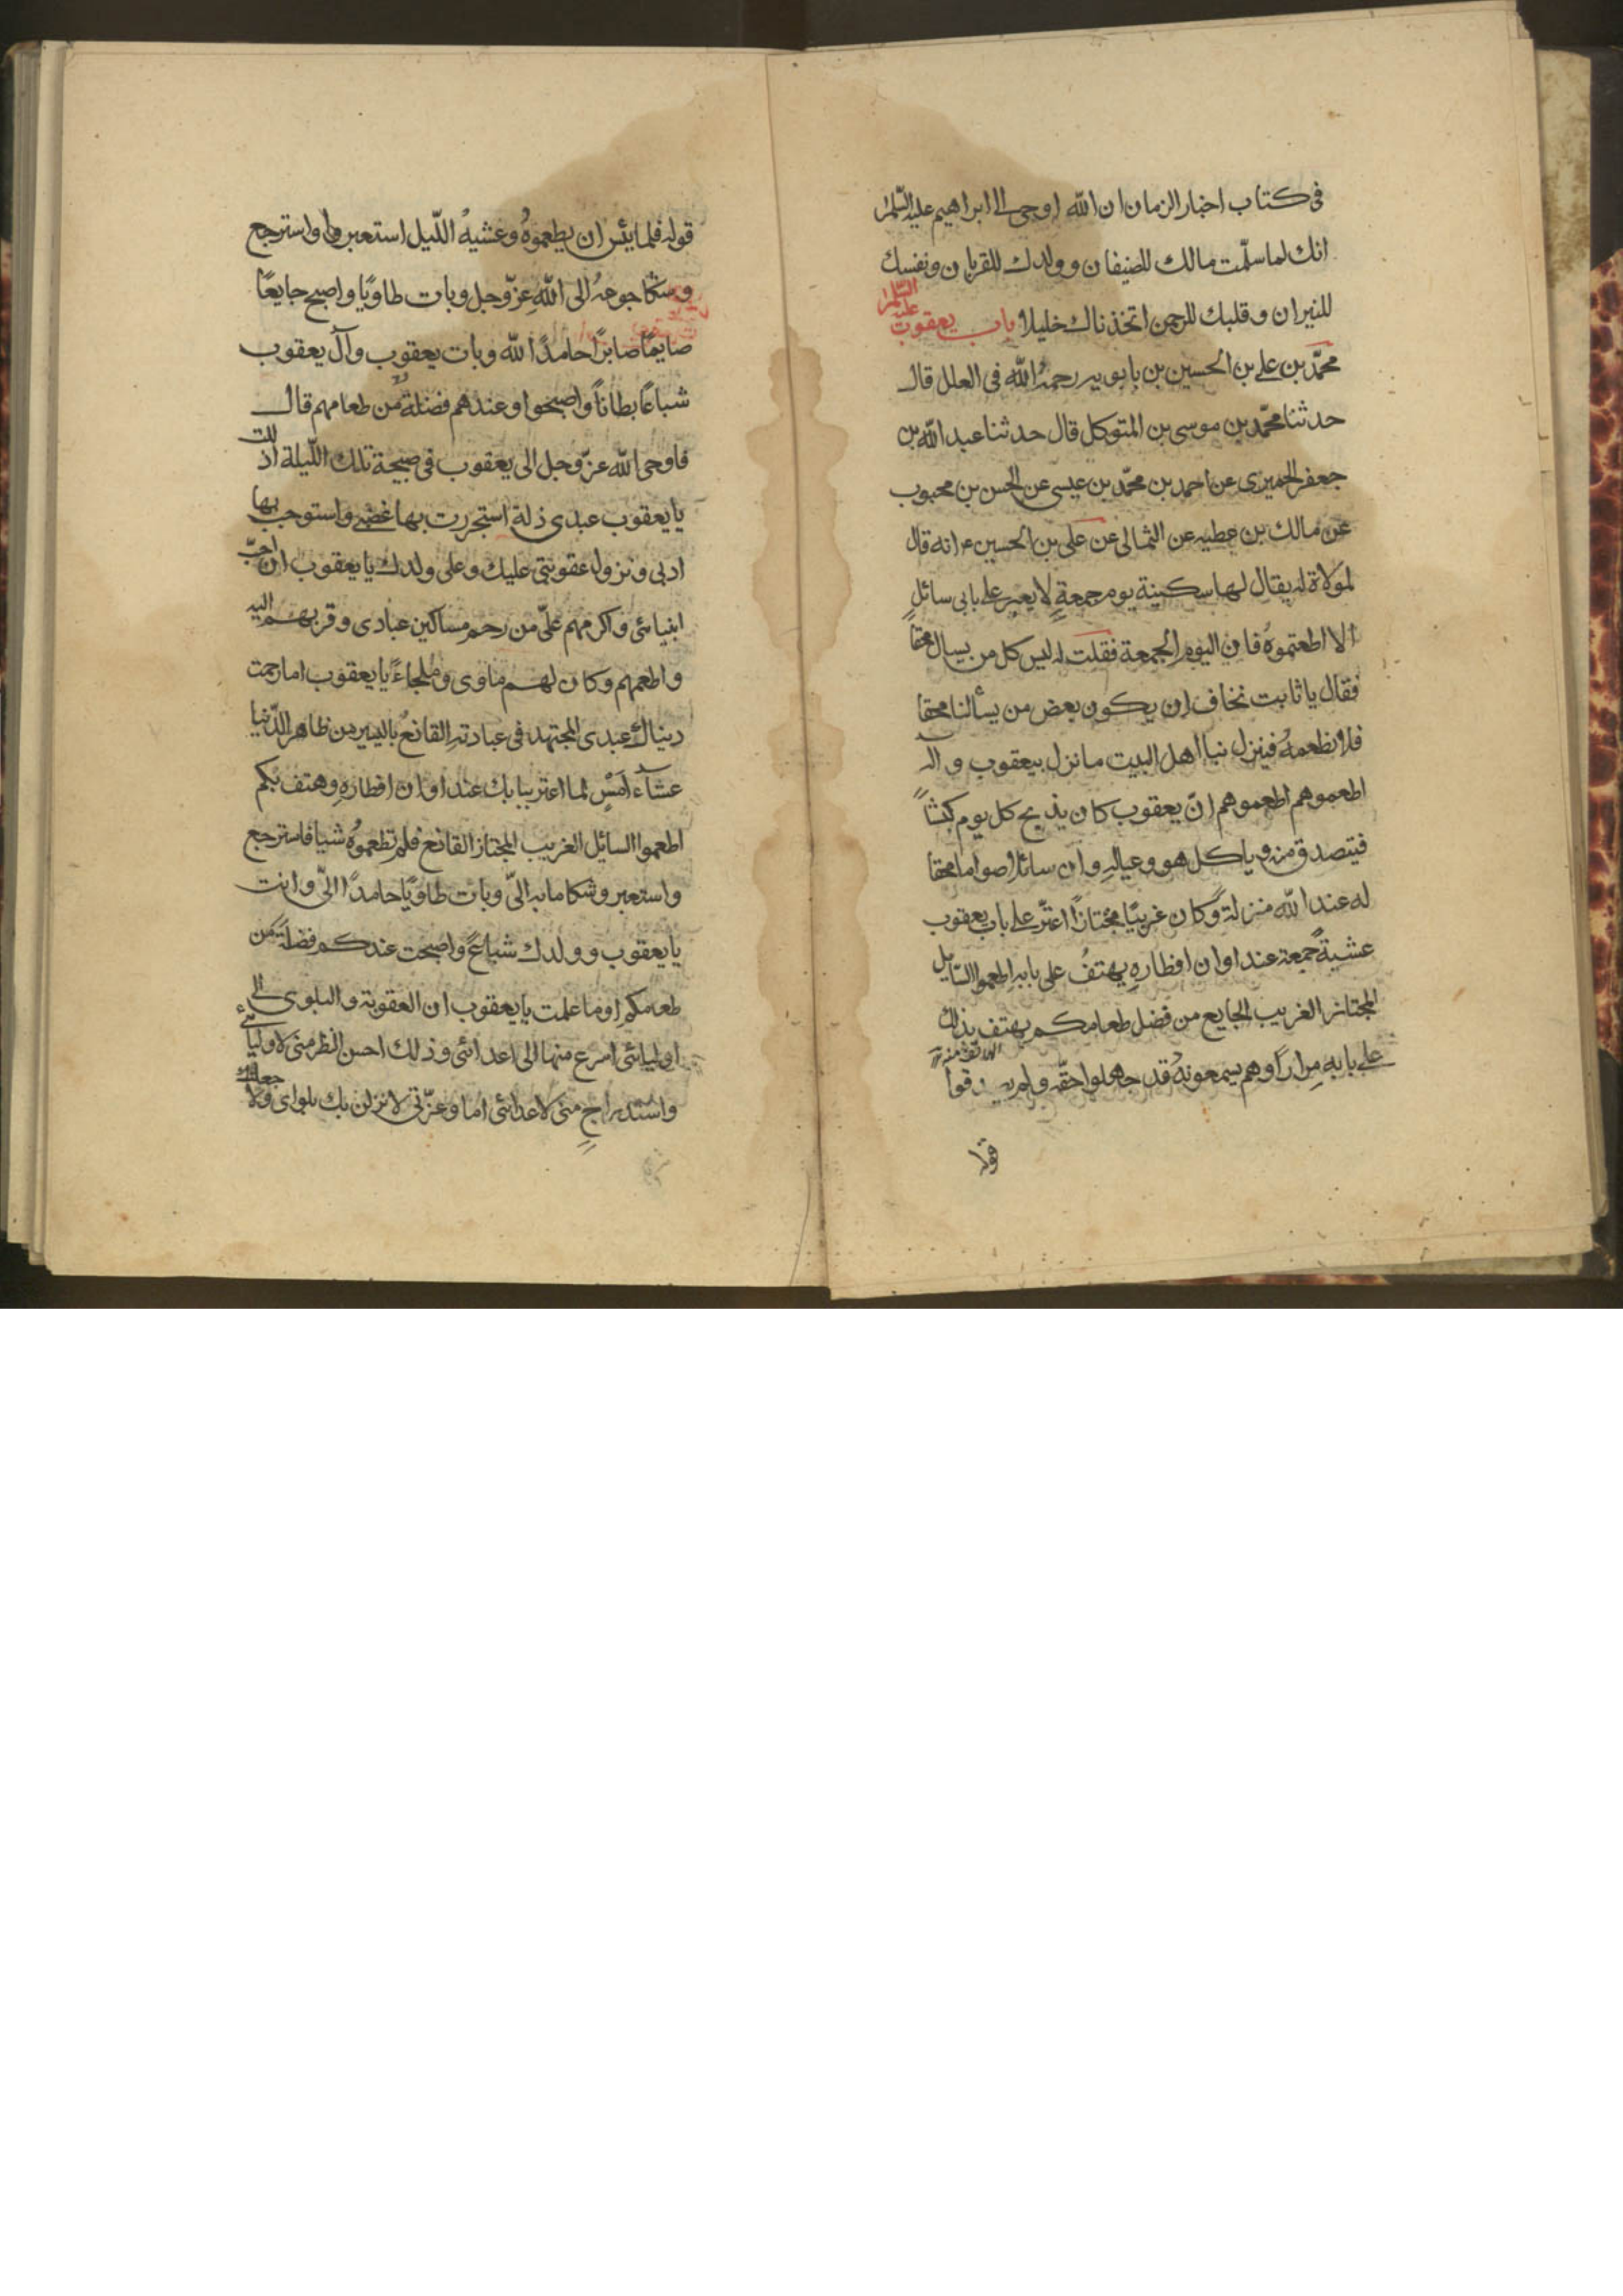 فى كتاب اخبار الزمان ان الله اوحى الى ابراهيم عليه السلم
انك لما سلّمت مالك للضيفان وولدك للقربان ونفسك
للنيران وقلبك للرحمن اتخذناك خليلا باب يعقوب عليه السلم
محمّد بن على بن الحسين بن بابويه رحمهُ الله فى العلل قال
حدثنا محمّد بن موسى بن المتوكل قال حدثنا عبد الله بن
جعفر الحميرى عن احمد بن محمّد بن عيسى عن الحسن بن محبوب
عن مالك بن عطيه عن الثمالى عن على بن الحسين ع انه قال
لمولاة له يقال لها سكينة يوم جمعةٍ لا يعبر على بابى سائلٍ
الا اطعمتموهُ فان اليوم الجمعة فقلت له ليس كل من يسال محقاً
فقال يا ثابت نخاف ان يكون بعض من يسألنا محقا
فلا نطعمهُ فينزل بنا اهل البيت ما نزل بيعقوب وآله
اطعموهم اطعموهم انّ يعقوب كان يذبح كل يوم كبشاً
فيتصدق منه وياكل هو وعيالهِ وان سائلا صواما محقا
له عند الله منزلة وكان غريبًا مجتازًا اعترّ على باب يعقوب
عشيةً جمعة عند اوان افطارهِ يهتفُ على بابهِ اطعموا السّايل
المجتاز الغريب الجايع من فضل طعامكم يهتف بذلك
على بابه مِرارًا وهم يسمعونهُ قد جهلوا حقّه ولم يصدقوا
قوله
قوله فلما يئس ان يطعموهُ وغشيهُ اللّيل استعبر واسترجع
وشكا جوعهُ الى اللهِ عزّ وجل وبات طاويًا واصبح جايعًا
صايمًا صابرًا حامدًا لله وبات يعقوب وآل يعقوب
شباعًا بطانًا واصبحوا وعندهم فضلةٌ من طعامهم قال
فاوحى الله عزّ وجل الى يعقوب فى صبيحة تلك اللّيلة لقد اذ
يا يعقوب عبدى ذلة استجررت بها غضبى واستوجب بها
ادبى ونزول عقوبتى عليك وعلى ولدك يا يعقوب ان احبّ
انبيائى واكرمهم علىّ من رحم مساكين عبادى وقربهم اليه
واطعمهم وكان لهم ماوى وملجاءً يا يعقوب اما رحمت
ديناك عبدى المجتهد فى عبادتهِ القانعُ باليسير من ظاهر الدّنيا
عشآء امسِ لما اعتر ببابك عند اوان افطارهِ وهتف بكم
اطعموا السايل الغريب المجتاز القانع فلم تطعموُه شيا فاسترجع
واستعبر وشكا ما به الىّ وبات طاويًا حامدًا الىّ وانت
يا يعقوب وولدك شباعٌ واصبحت عندكم فضلةً من
طعامكم اوما علمت يا يعقوب ان العقوبة والبلوى الى
اوليائى اسرع منها الى اعدائى وذلك احسن النظر منى لاوليائى
واستدراجٍ منى لاعدائى اما وعزّتى لانزلن بك بلواى ولاجعلنك